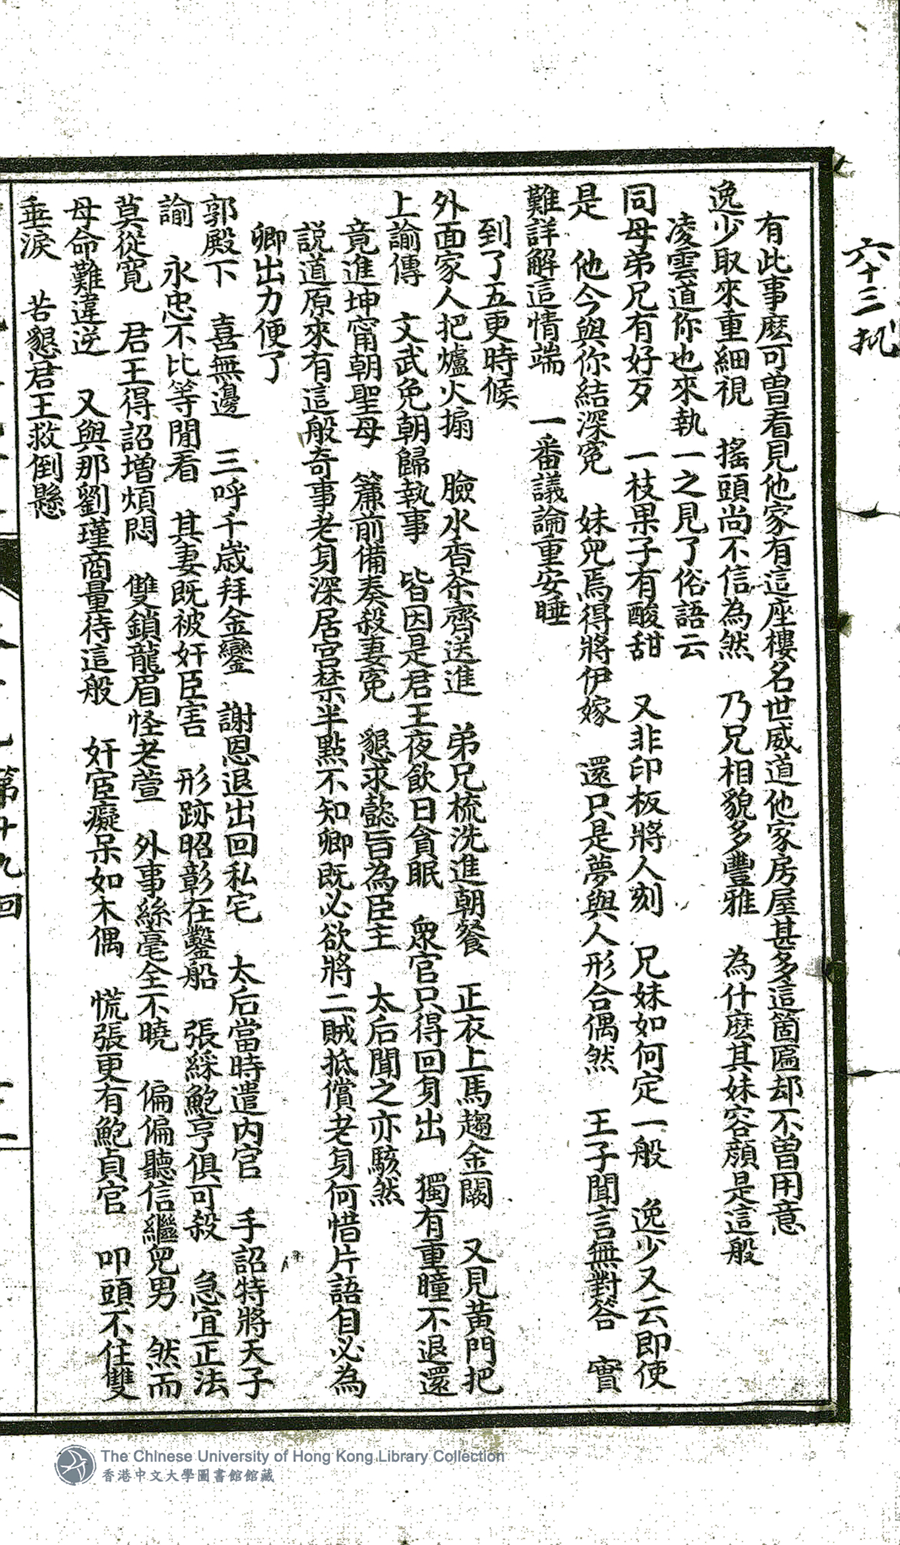 六十三扎
有此事麽可曾看見他家有這座樓名世威道他家房屋甚多這箇匾却不曾用意
逸少取來重細視　搖頭尚不信為然　乃兄相貌多豐雅　為什麽其妹容顔是這般
凌雲道你也來執一之見了俗語云
同母弟兄有好歹　一枝果子有酸甜　又非印板將人刻　兄妹如何定一般　逸少又云即使
是　他今與你結深寃　妹兒焉得將伊嫁　還只是夢與人形合偶然　王子聞言無對答　實
難詳解這情端　一番議論重安睡
到了五更時候
外面家人把爐火搧　臉水香茶齊送進　弟兄梳洗進朝餐　正衣上馬趨金闕　又見黄門把
上諭傳　文武免朝歸執事　皆因是君王夜飲日貪眠　衆官只得回身出　獨有重瞳不退還
竟進坤甯朝聖母　簾前備奏殺妻寃　懇求懿旨為臣主　太后聞之亦駭然
説道原來有這般奇事老身深居宮禁半點不知卿既必欲將二賊抵償老身何惜片語自必為
卿出力便了
郭殿下　喜無邊　三呼千歲拜金鑾　謝恩退出回私宅　太后當時遣内官　手詔特將天子
諭　永忠不比等閒看　其妻既被奸臣害　形跡昭彰在鑿船　張綵鮑亨俱可殺　急宜正法
莫從寬　君王得詔增煩悶　雙鎖龍眉怪老萱　外事絲毫全不曉　偏偏聽信繼兒男　然而
母命難違逆　又與那劉瑾商量待這般　奸宦癡呆如木偶　慌張更有鮑貞官　叩頭不住雙
垂淚　苦懇君王救倒懸
第十九回
The Chinese University of Hong Kong Library Collection
香港中文大學圖書館館藏